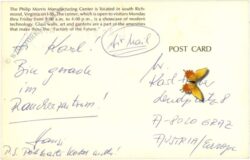 The Philip Morris Manufacturing Center is located in south Rich-
mond, Virginia on I-95. The center, which is open to visitors Monday
thru Friday from 9:00 a.m. to 4:00 p.m., is a showcase of modern
technology. Glass walls, art and gardens are a part of the amenities
that make this the "Factory of the Future."
Air Mail
POST CARD
Hi Karl!
Bin gerade
im
Raucherzentrum!
Hans
P.S. Postkarte
A-8020 GRAZ
AUSTRIA/Europe